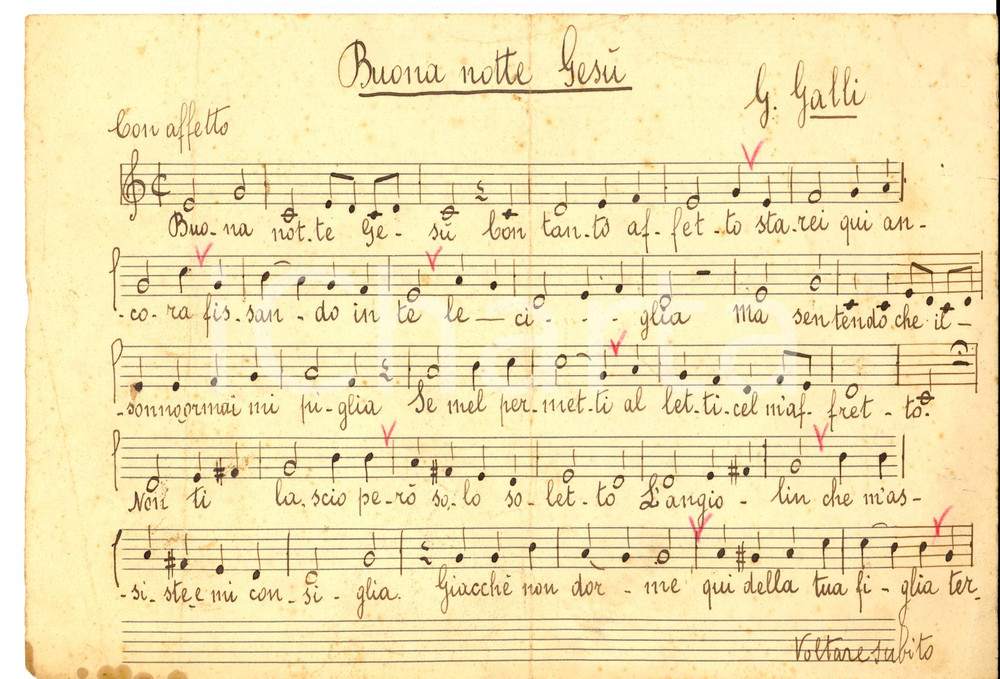 Buona notte Gesù
G. Galli
Con affetto
Buo-na not-te Ge-sù Con tan-to af-fet-to sta-rei qui an-
-co-ra fis-san-do in te le-ci-glia ma sentendo che il-
-sonno ormai mi pi-glia Se mel per-met-ti al let-ti-cel m'af-fret-to.
Non ti la-scio pe-rò so-lo so-let-to L'angio-lin che m'as-
-si-ste e mi con-si-glia. Giacchè non dor-me qui della tua fi-glia ter-
Voltare subito